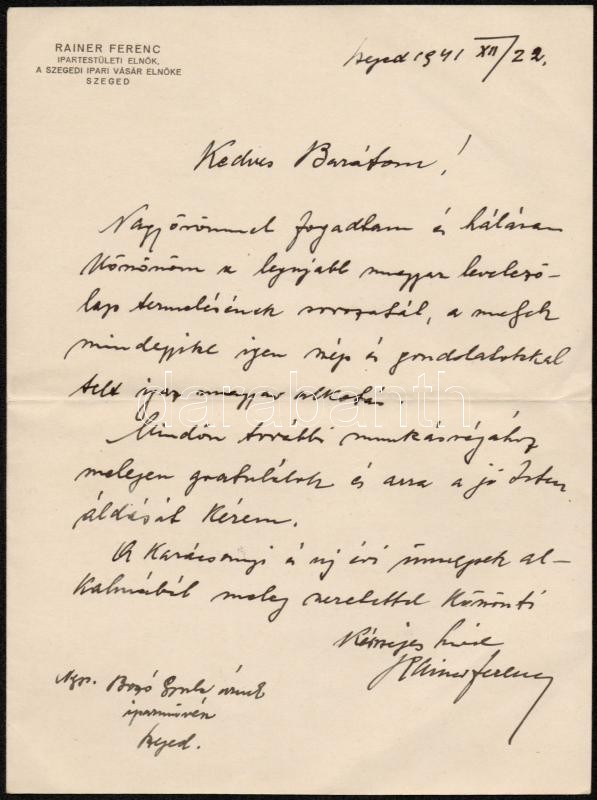 RAINER FERENC
IPARTESTÜLETI ELNÖK,
A SZEGEDI IPARI VÁSÁR ELNÖKE
SZEGED
Szeged 1941 XII/22.
Kedves Barátom!
Nagy örömmel fogadtam és hálásan
köszönöm a legujabb magyar levelező-
lap termelésének sorozatát, a melyek
mindegyike igen szép és gondolatokkal
telt igaz magyar alkotás
további munkásságához
melegen gratulálok és arra a jó Isten
áldását kérem.
A Karácsonyi és uj évi ünnepek al-
kalmából meleg szeretettel köszönti
Készséges hive
Rainer Ferenc
Ngs. Bozó Gyula urnak
iparművész
Szeged.
darabanth